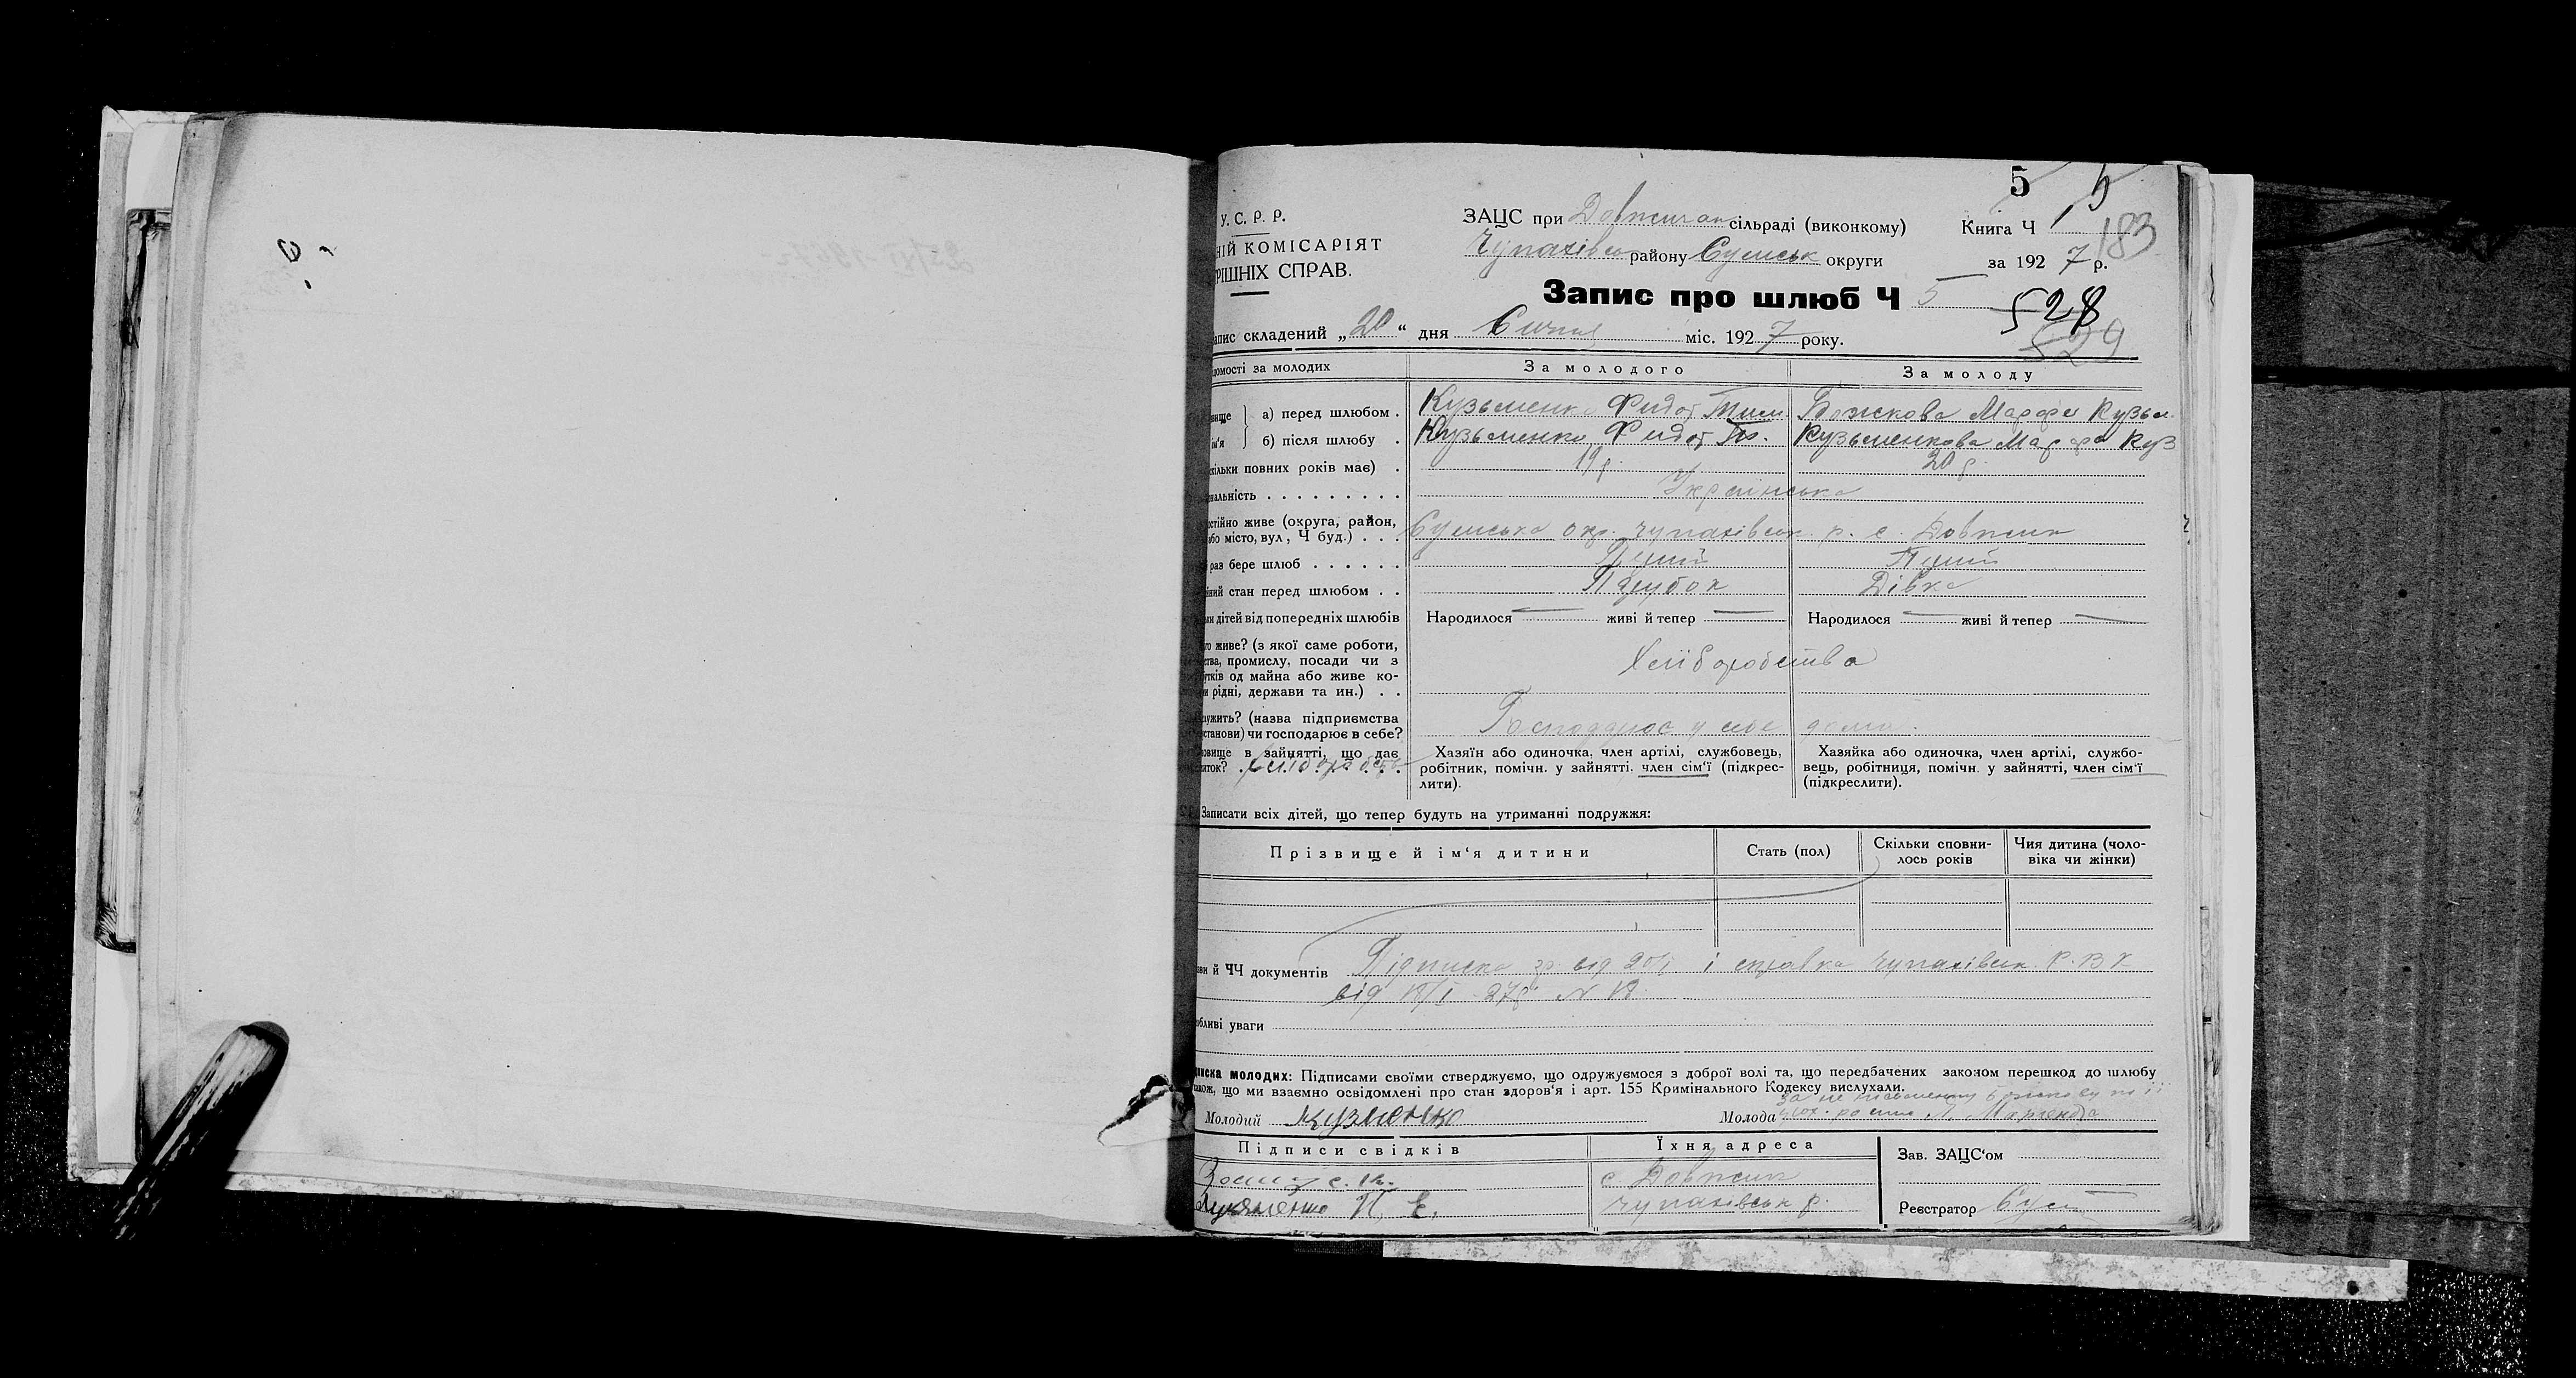 5 5
У. С. Р. Р.
НІЙ КОМІСАРІЯТ
РІШНІХ СПРАВ.
ЗАЦС при Довжичан сільраді (виконкому)
Книга Ч 1
183
Чупахівськ району Сумськ округи
за 1927 р.
Запис про шлюб Ч 5
528
529
апис складений „20“ дня Січня міс. 1927 року.
домості за молодих
За молодого
За молоду
вище а) перед шлюбом . Кузьменко Фидот Тим. Божкова Марфа Кузьм.
ім'я б) після шлюбу . Кузьменко Фидот Кузьменкова Марфа Куз
скільки повних років має) . 19 р. 20 р.
нальність . . . . . . . . . Українська
остійно живе (округа, район,
або місто, вул, Ч буд.) . . . Сумська окр. Чупахівськ. р. с. Довжик
раз бере шлюб . . . . . .
йний стан перед шлюбом . . Парубок Дівка
ки дітей від попередніх шлюбів Народилося — живі й тепер — Народилося — живі й тепер —
го живе? (з якої саме роботи,
ства, промислу, посади чи з
утків од майна або живе ко-
и рідні, держави та ин.) . .
Хліборобства
лужить? (назва підприємства
станови) чи господарює в себе?
овище в зайнятті, що дає
иток? Хлібороб
Хазяїн або одиночка, член артілі, службовець,
робітник, помічн. у зайнятті, член сім'ї (підкрес-
лити).
Хазяйка або одиночка, член артілі, службо-
вець, робітниця, помічн. у зайнятті, член сім'ї
(підкреслити).
Записати всіх дітей, що тепер будуть на утриманні подружжя:
Прізвище й ім'я дитини
Стать (пол)
Скільки сповни-
лось років
Чия дитина (чоло-
віка чи жінки)
ви й ЧЧ документів Підписка від і справка Чупахівськ. Р. В. К
від 18/I 27р. N 18
обливі уваги
писка молодих: Підписами своїми стверджуємо, що одружуємося з доброї волі та, що передбачених законом перешкод до шлюбу
також, що ми взаємно освідомлені про стан здоров'я і арт. 155 Кримінального Кодексу вислухали.
Молодий Кузменко
Молода
Підписи свідків
Їхня адреса
Зав. ЗАЦС'ом
с. Довжик
Лукяненко П. Е.
Чупахівськ р.
Реєстратор